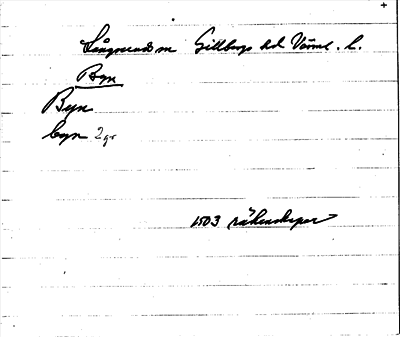 Långserud sn Gillbergs hd Värml. l.
Byn
Byn
byn 2 gr
1503 räkenskaper